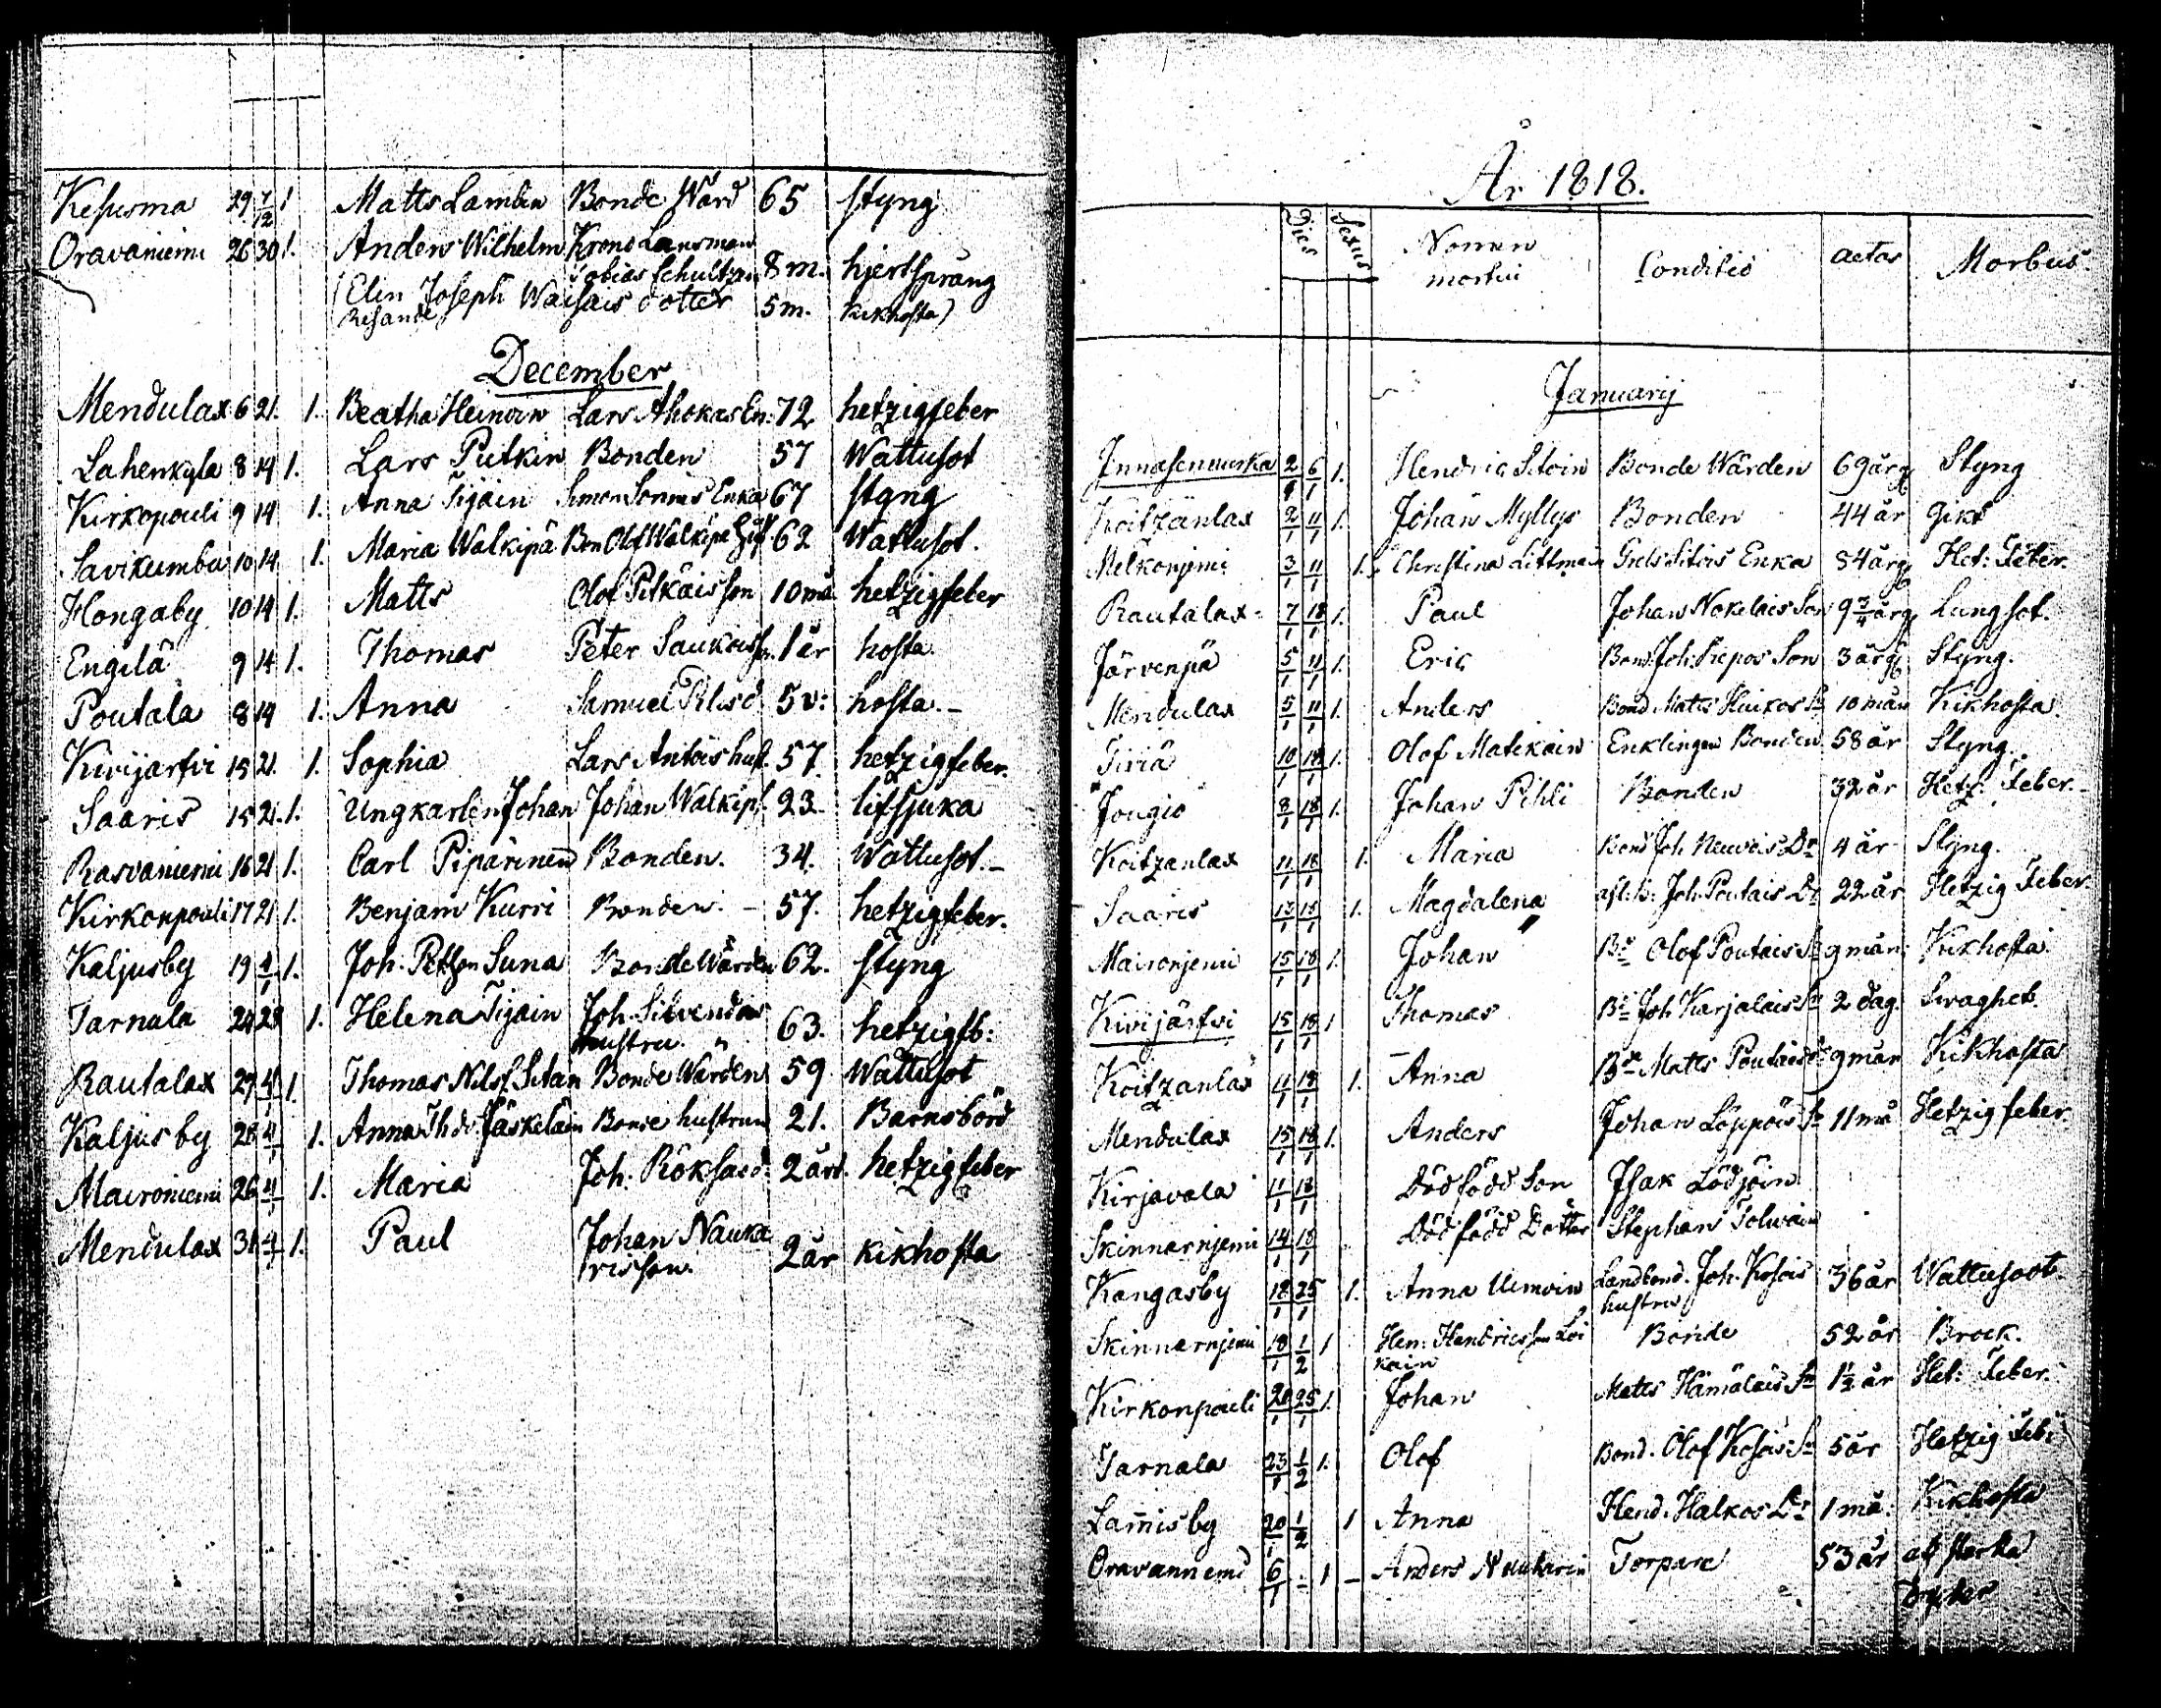 Kesusma 29 7/12 1 Matts Lambin Bonde Wärd 65 styng
Oravaniemi 26 30 1. Anders Wilhelm Krono Lansman
Tobias Schultzen 8 m. hjertspräng
(Elin Joseph Waisais dotter 5 m. kikhosta)
Resande
December
Mendulax 6 21. 1. Beatha Heinoin Lars Ahokas En: 72 hetzigfeber
Lahenkyla 8 14 1. Lars Putkin Bonden 57 Wattusot
Kirkopouli 9 14 1. Anna Tijain Simon Sonnis Enka 67 styng
Savikumbu 10 14 1. Maria Walkipä Bon Olof Walkipä 62 Wattusot.
Hongaby 10 14 1. Matts Olof Pitkäis son 10 må hetzigfeber
Engilä 9 14 1. Thomas Peter Saukois 1 år hosta
Poutala 8 14 1. Anna Samuel 5 v: hosta. -
Kivijarfvi 15 21. 1. Sophia Lars Antois hust. 57. hetzigfeber.
Saaris 15 21. 1. Ungkarlen Johan Johan Walkip 23. lifsjuka
Rasvaniemi 16 21 1. Carl Pipärinen Bonden. 34. Wattusot. -
Kirkonpouli 17 21 1. Benjam Kurri Bonden. - 57. hetzigfeber.
Kaljusby 19 4/1 1. Joh. Petson Suna Bonde Wärden 62. styng
Tarnala 24 28 1. Helena Tijain Joh. Silvendos
hustru. 63. hetzigfb:
Rautalax 27 4/1 1. Thomas Nilsf Sitan Bonde Wärden 59 Wattusot
Kaljusby 28 4/1 1. Anna Thdr Jäskeläin Bonde hustrun 21. Barnsbörd
Maironiemi 26 4/1 1. Maria Joh. Röksasd. 2 år hetzigfeber
Mendulax 31 4/1 1. Paul Johan Nauka
risson. 2 år kikhosta
År 1818.
Dies Sexus Nomen
mortui Conditio aetas Morbus
Januarij
Innasennurka 2/1 6/1 1. Hendric Sitoin Bonde Wärden 69 år Styng
Koitzanlax 2/1 11/1 1. Johan Myllys Bonden 44 år Gikt
Melkonjemi 3/1 11/1 1. Christina Littman Grels Sitois Enka 84 år Het: Feber.
Rautalax 7/1 18/1 1. Paul Johan Nokelais Son 9 3/4 år Lungsot.
Järvenpä 5/1 11/1 1. Eric Bond. Joh: Repos Son 3 år Styng.
Mendulax 5/1 11/1 1. Anders Bond. Matts Huikos Sn 10 mån Kikhosta
Tiviä 10/1 18/1 1. Olof Matikain Enklingen Bonden 58 år Styng.
Jougio 8/1 18/1 1. Johan Pihli Bonden 32 år Hetz. Feber. -
Koitzanlax 11/1 18/1 1. Maria Bond Joh. Neuvois Dr 4 år Styng.
Saaris 13/1 18/1 1. Magdalena Joh. Poutais Dr 22 år Hetzig Feber.
Maironjemi 15/1 18/1 1. Johan Bn Olof Poutais Sn 9 mån: Kikhosta
Kivijärfvi 15/1 18/1 1 Thomas Bn Joh. Karjalais Sn 2 dag. Swaghet.
Koitzanlax 11/1 18/1 1. Anna Bn Matts Poutais dr 9 mån Kikhosta
Mendulax 15/1 18/1 1. Anders Johan Löppöis Sn 11 må Hetzig feber.
Kirjavala 11/1 18/1 Dödfödd Son Isak Lödjöin
Skinnarnjemi 14/1 18/1 Dödfödd Dotter Stephan Tolwain
Kangasby 18/1 25/1 1. Anna Uimoin Landbond. Joh. Kosois
hustru 36 år Wattusoot.
Skinnarnjemi 18/1 1/2 1 Hen: Hendricsson Loi
kain Bonde 52 år Brock.
Kirkonpouli 20/1 25/1 1. Johan Matts Hämäläis Sn 1 1/2 år Het: Feber.
Tarnala 23/1 1/2 1. Olof Bond. Olof Kosois Sn 5 år Hetzig Feb:
Lamisby 20/1 1/2 1 Anna Hend. Halkos Dr 1 må. Kikhosta
Oravanniemi 6/1 1 - Anders Torpare 53 år af starka